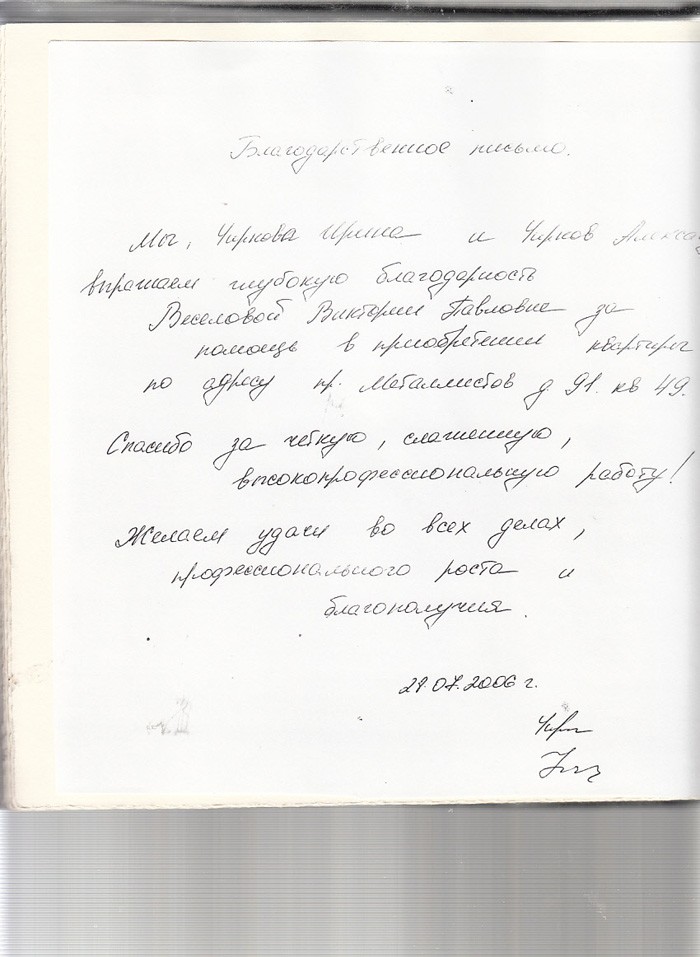 Благодарственное письмо.
Мы, Чиркова Ирина и Чирков Алекса
выражаем глубокую благодарность
Веселовой Виктории Павловне за
помощь в приобретении квартиры
по адресу пр. Металлистов д 91. кв 49.
Спасибо за чёткую, слаженную,
высокопрофессиональную работу!
Желаем удачи во всех делах,
профессионального роста и
благополучия.
29.07.2006 г.